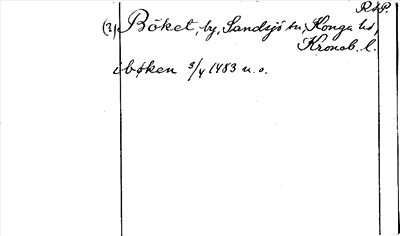 R & P.
(?) Böket, by, Sandsjö sn, Konga hd,
Kronob. l.
i bøken 3/4 1483 u. o.